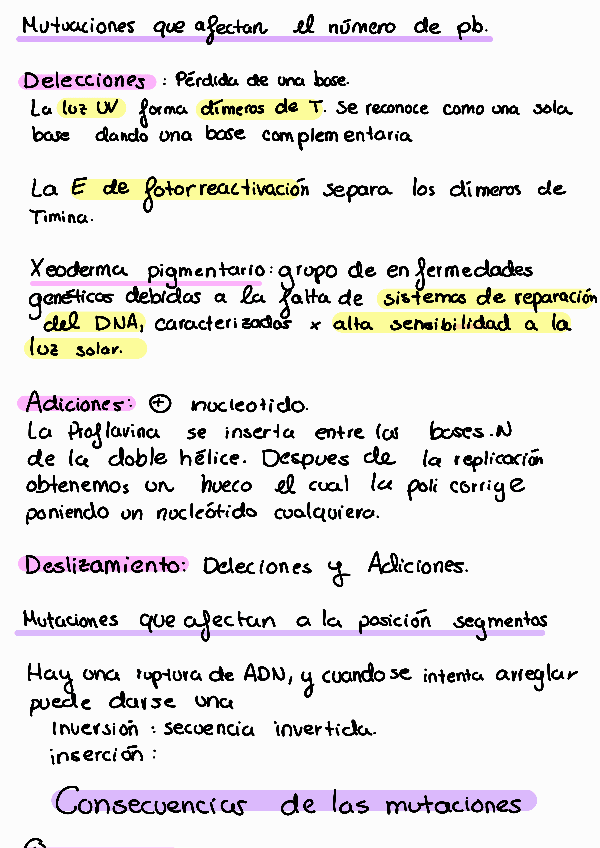 Mutuaciones que afectan el número de pb.
Delecciones : Pérdida de una base.
La luz UV forma dímeros de T. Se reconoce como una sola
base dando una base complementaria
La E de fotorreactivación separa los dímeros de
Timina.
Xeoderma pigmentario: grupo de enfermedades
genéticas debidas a la falta de sistemas de reparación
del DNA, caracterizadas x alta sensibilidad a la
luz solar.
Adiciones: ⊕ nucleotido.
La Proflavina se inserta entre las bases.N
de la doble hélice. Despues de la replicación
obtenemos un hueco el cual la poli corrige
poniendo un nucleótido cualquiera.
Deslizamiento: Deleciones y Adiciones.
Mutaciones que afectan a la posición segmentos
Hay una ruptura de ADN, y cuando se intenta arreglar
puede darse una
Inversión : secuencia invertida.
inserción :
Consecuencias de las mutaciones